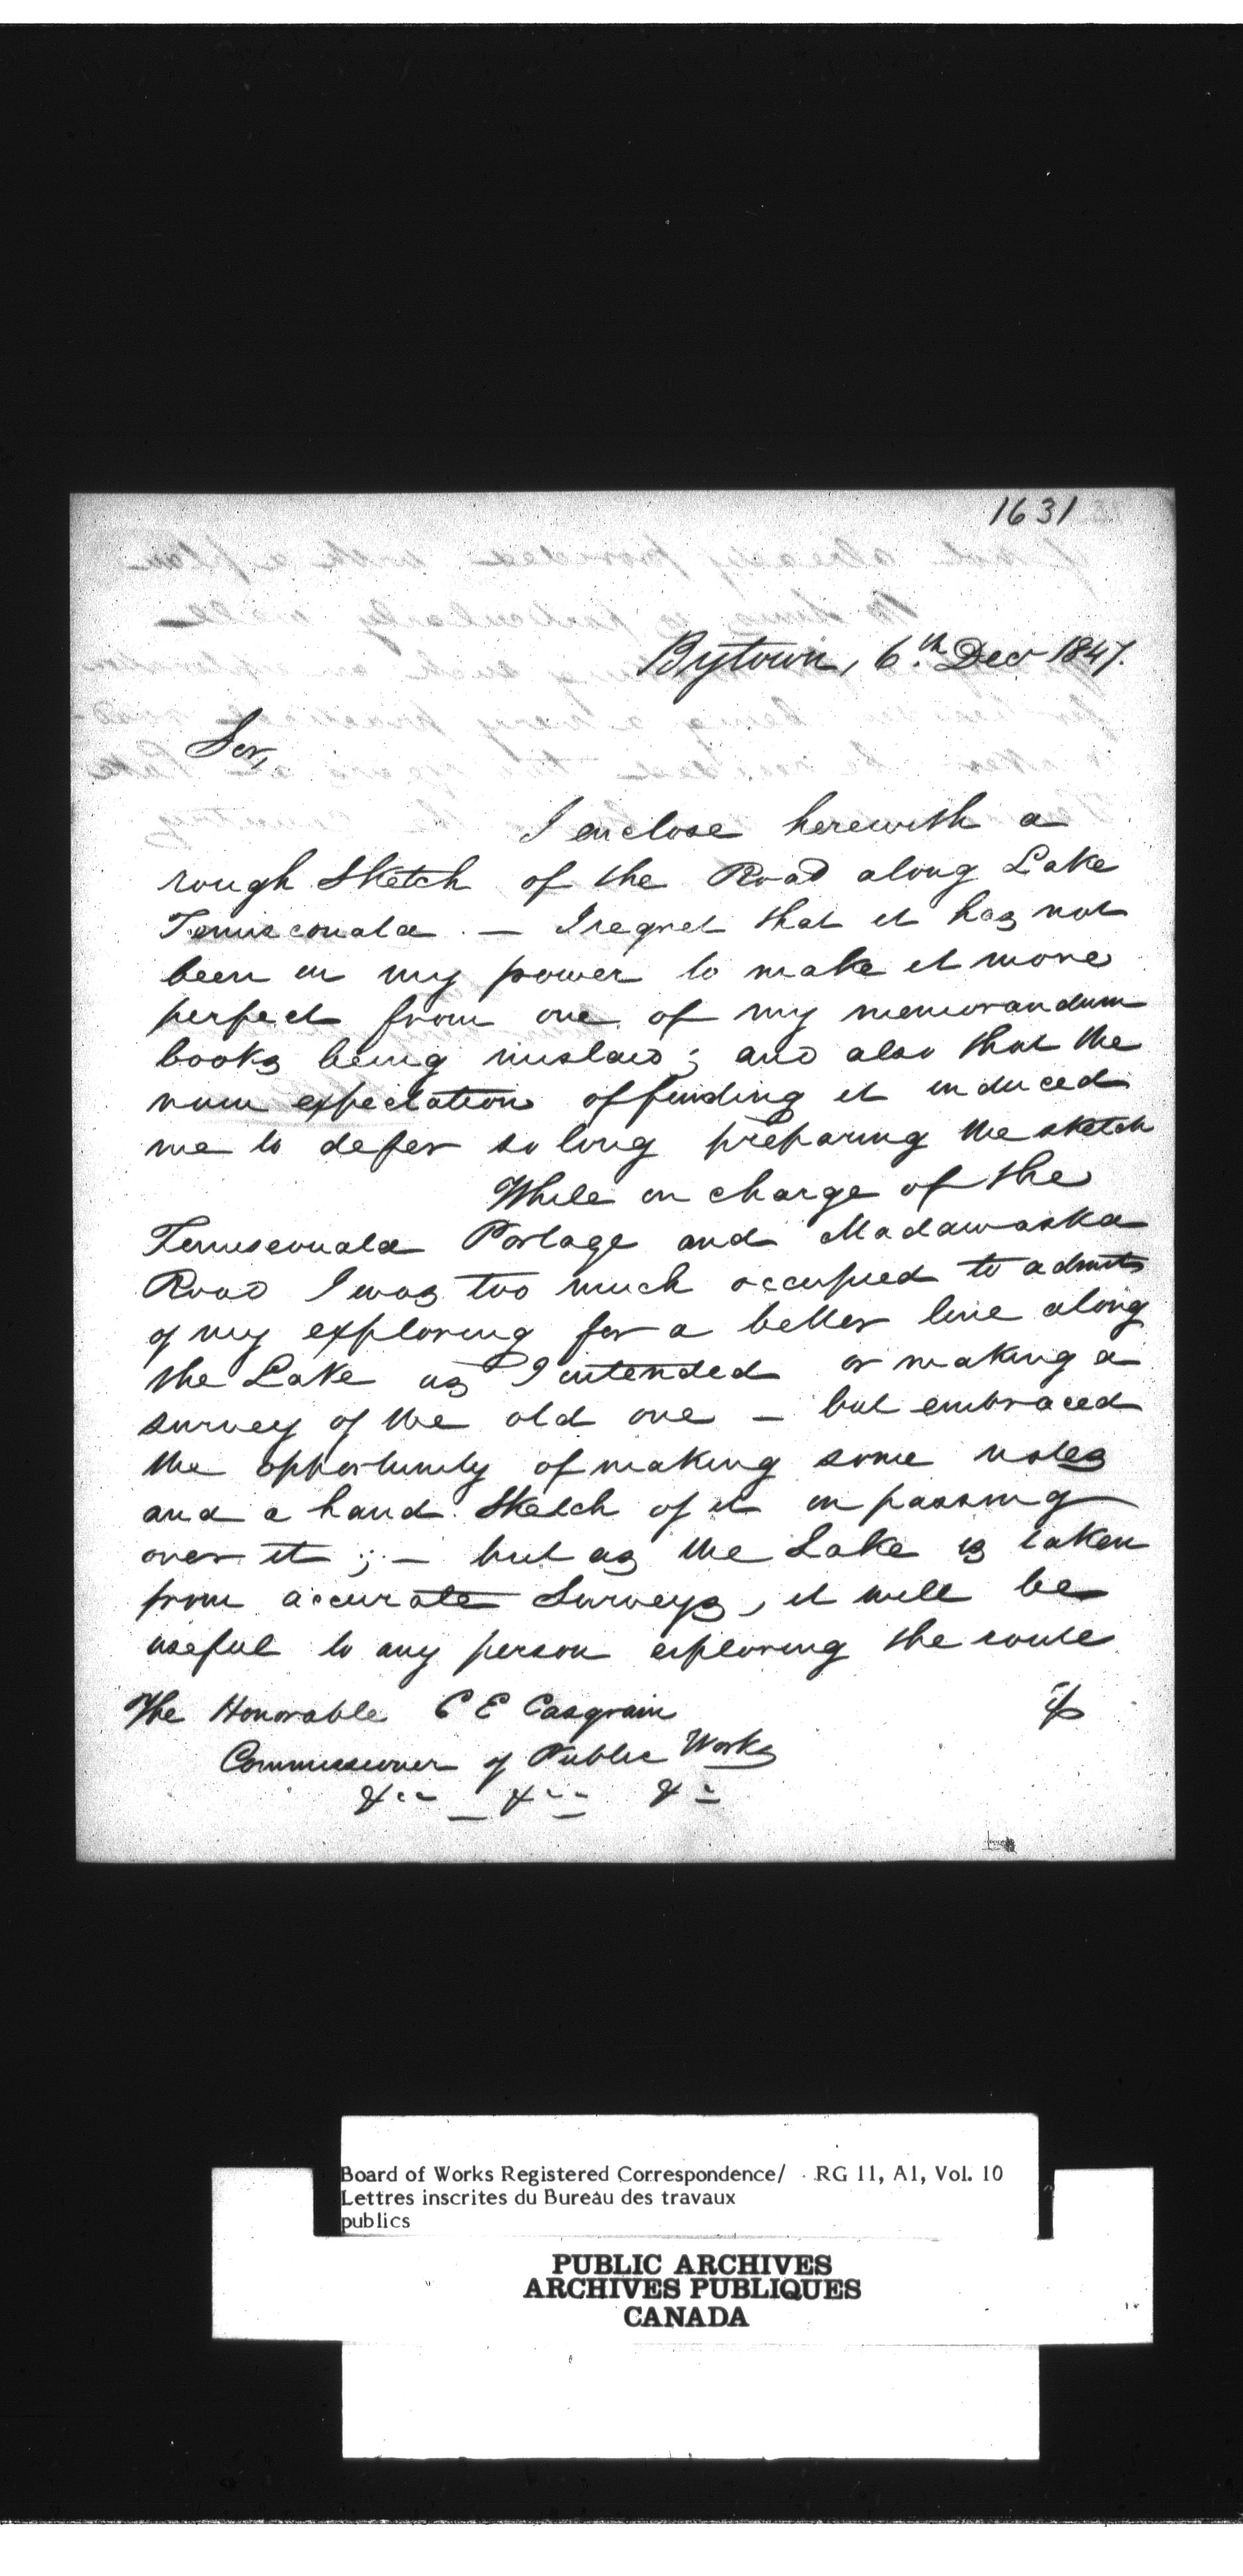 1631
Bytown, 6th Decr 1847.
Sir,
I enclose herewith a
rough Sketch of the Road along Lake
Temiscouata. — I regret that it has not
been in my power to make it more
perfect from one of my memorandum
books being mislaid; and also that the
vain expectation of finding it induced
me to defer so long preparing the sketch
While in charge of the
Temiscouata Portage and Madawaska
Road I was too much occupied to admit
of my exploring for a better line along
the Lake as I intended or making a
survey of the old one — but embraced
the opportunity of making some notes
and a hand Sketch of it in passing
over it; — but as the Lake is taken
from accurate Surveys, it will be
useful to any person exploring the route
The Honorable C E Casgrain
if
Commissioner of Public Works
&c — &c &c
Board of Works Registered Correspondence/ RG 11, A1, Vol. 10
Lettres inscrites du Bureau des travaux
publics
PUBLIC ARCHIVES
ARCHIVES PUBLIQUES
CANADA